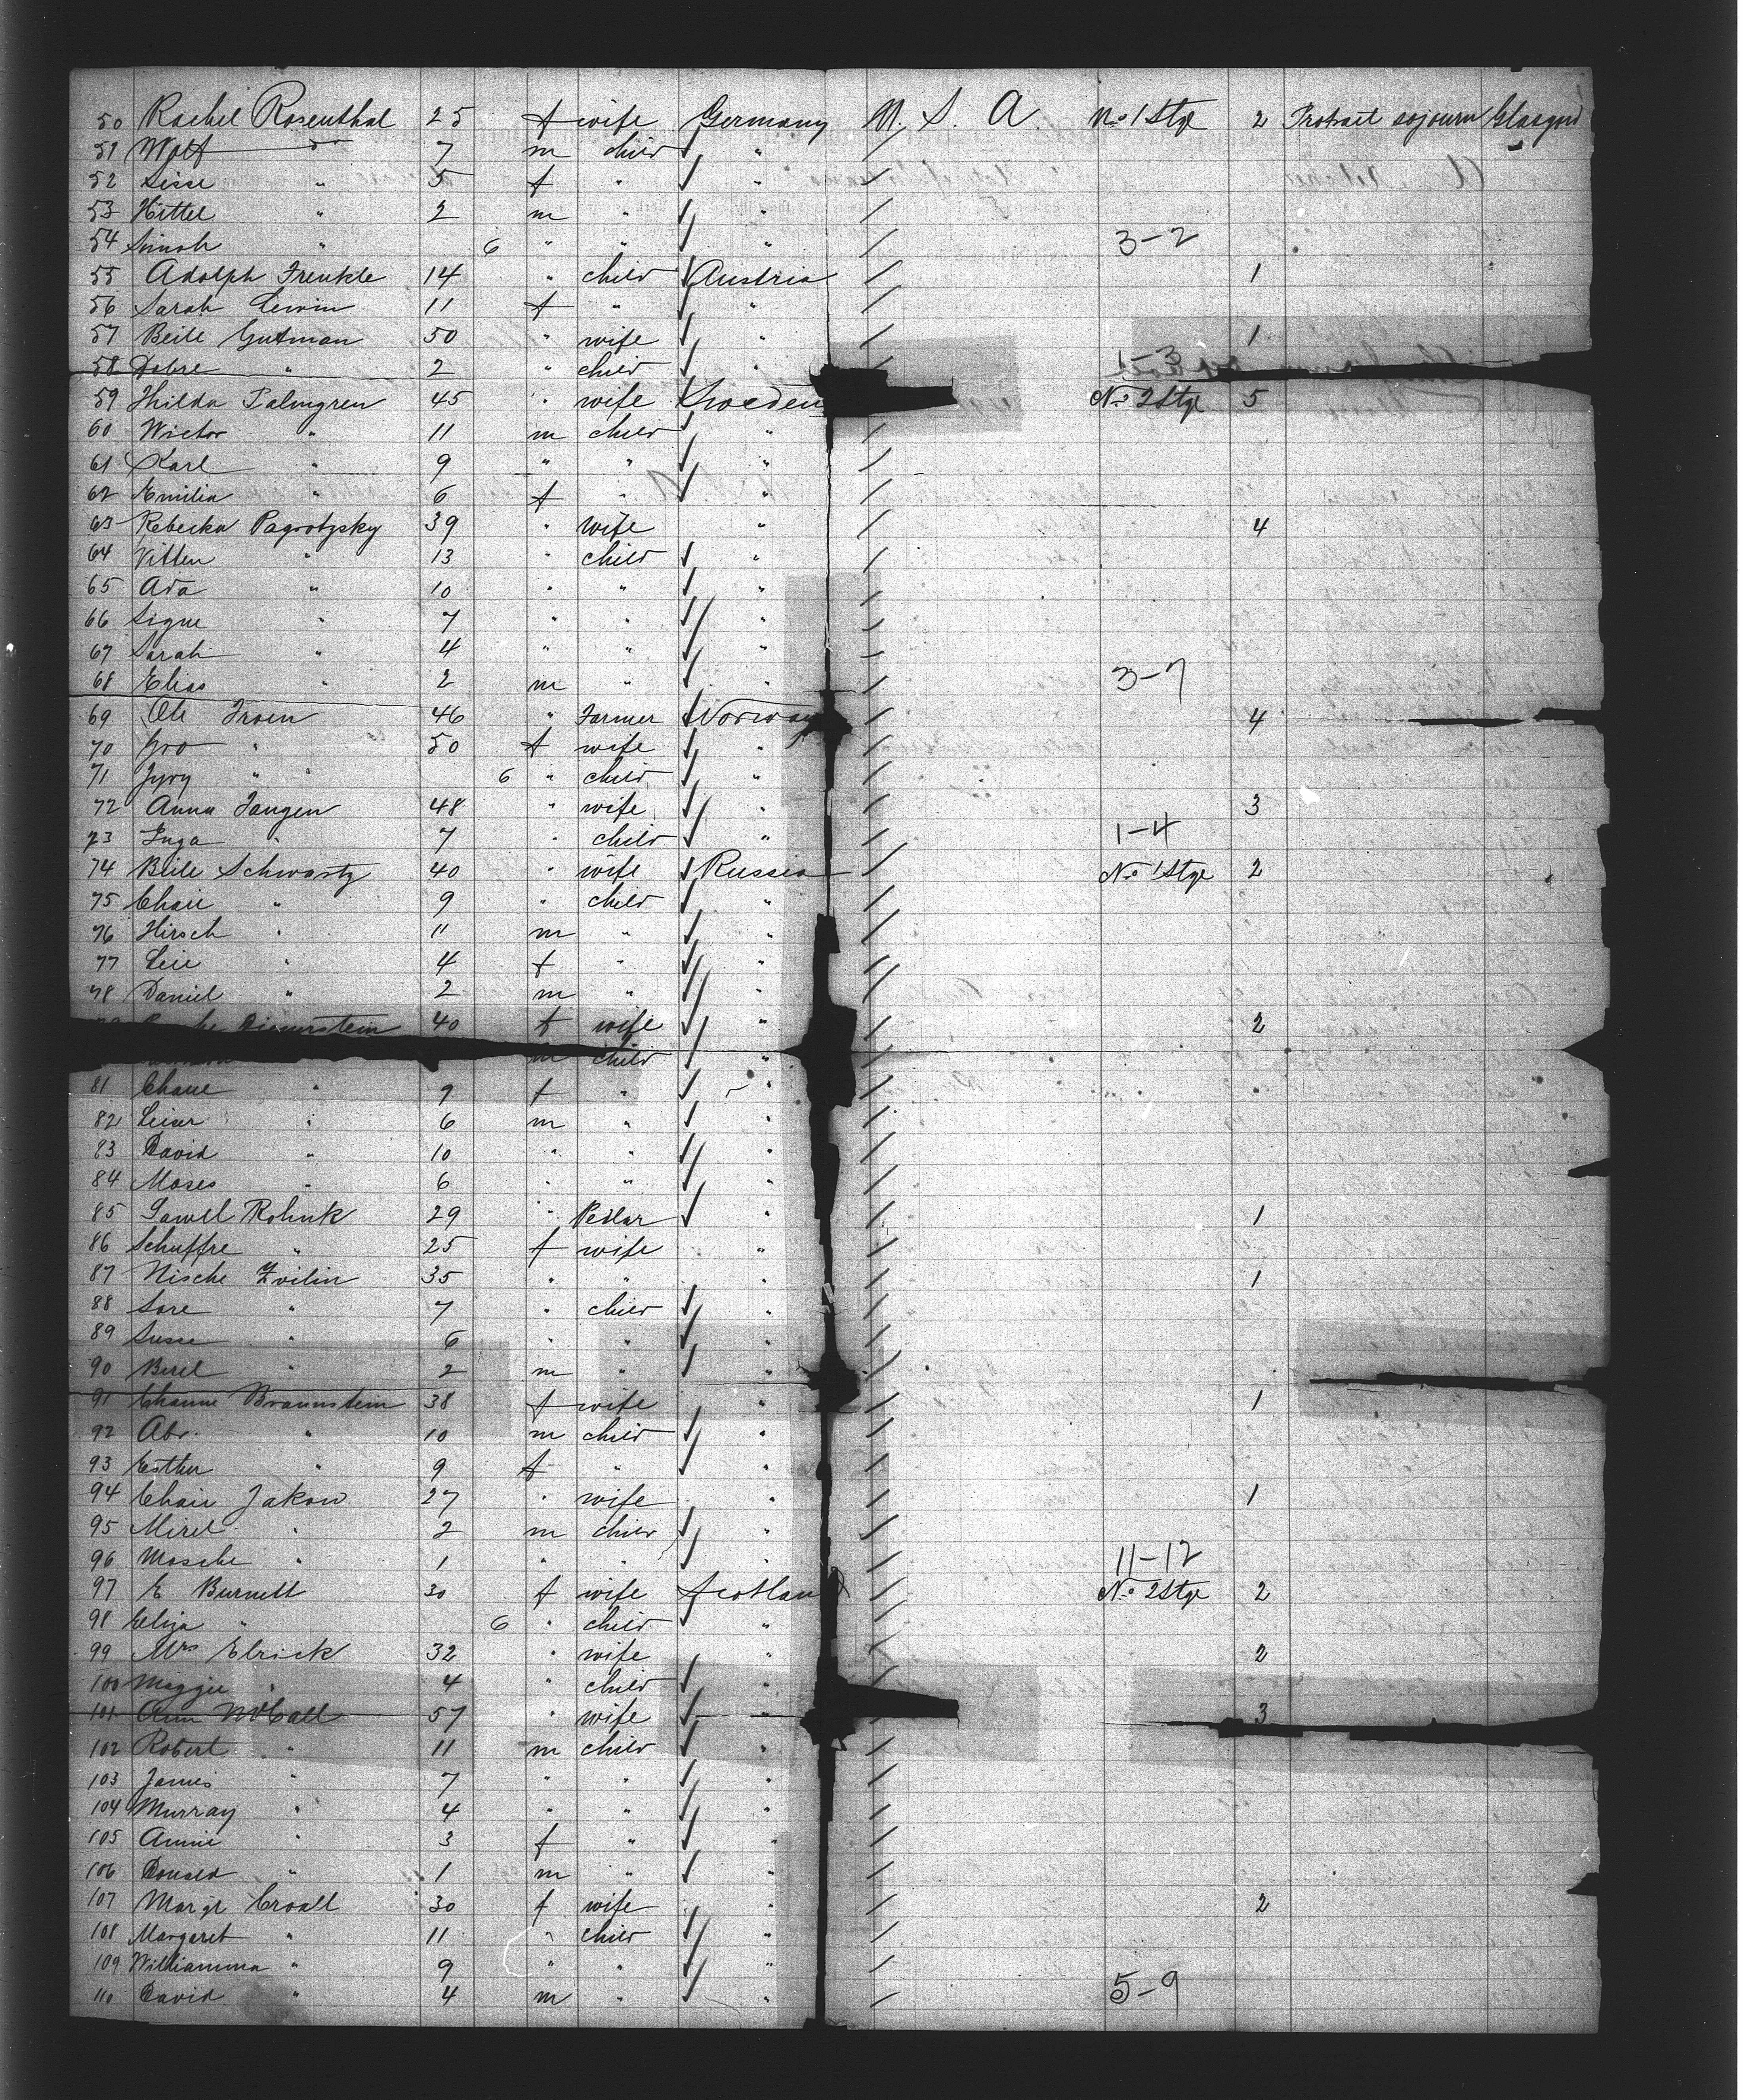 50 Rachel Rosenthal 25 f wife Germany U. S. A. No 1 Stge 2 Protract sojourn Glasgow
51 Wolf " 7 m child "
52 Lisse " 5 f " "
53 Hittel " 2 m " "
54 " 6 " " " 3-2
55 Adolph Frenkle 14 " child Austria 1
56 Sarah Lewin 11 f " "
57 Beile Gutman 50 " wife " 1
58 Dobre " 2 " child " 1-3
59 Hilda Palmgren 45 " wife Sweden No 2 Stge 5
60 Wictor " 11 m child "
61 Karl " 9 " " "
62 Emilia " 6 f " "
63 Rebecka Pagrotzsky 39 " wife " 4
64 Vitten " 13 " child "
65 Ada " 10 " " "
66 Signe " 7 " " "
67 Sarah " 4 " " "
68 Elias " 2 m " " 3-7
69 Ole Troen 46 " Farmer Norway 4
70 Gro " 50 f wife "
71 " " 6 " child "
72 Anna Tangen 48 " wife " 3
73 Inga " 7 " child " 1-4
74 Beile Schwartz 40 " wife Russia No 1 Stge 2
75 Chaie " 9 " child "
76 Hirsch " 11 m " "
77 Leie " 4 f " "
78 Daniel " 2 m " "
40 f wife " 2
m child "
81 Chane " 9 f " "
82 Leiser " 6 m " "
83 David " 10 " " "
84 Moses " 6 " " "
85 Sawel Rolnik 29 " Pedlar " 1
86 Schuffre " 25 f wife "
87 Nische Zvilin 35 " " " 1
88 Sore " 7 " child "
89 Susse " 6 " " "
90 Berel " 2 m " "
91 Channe Braunstein 38 f wife " 1
92 Abr. " 10 m child "
93 Esther " 9 f " "
94 Chaie Jakow 27 " wife " 1
95 Mirel " 2 m child "
96 Mosche " 1 " " " 11-12
97 E Burnett 30 f wife Scotland No 2 Stge 2
98 Eliza " 6 " child "
99 Mrs Elrick 32 " wife " 2
100 Maggie " 4 " child "
101 Ann McCall 57 " wife " 3
102 Robert " 11 m child "
103 James " 7 " " "
104 Murray " 4 " " "
105 Annie " 3 f " "
106 Donald " 1 m " "
107 Margt Croall 30 f wife " 2
108 Margaret " 11 " child "
109 Williamina " 9 " " "
110 David " 4 m " " 5-9